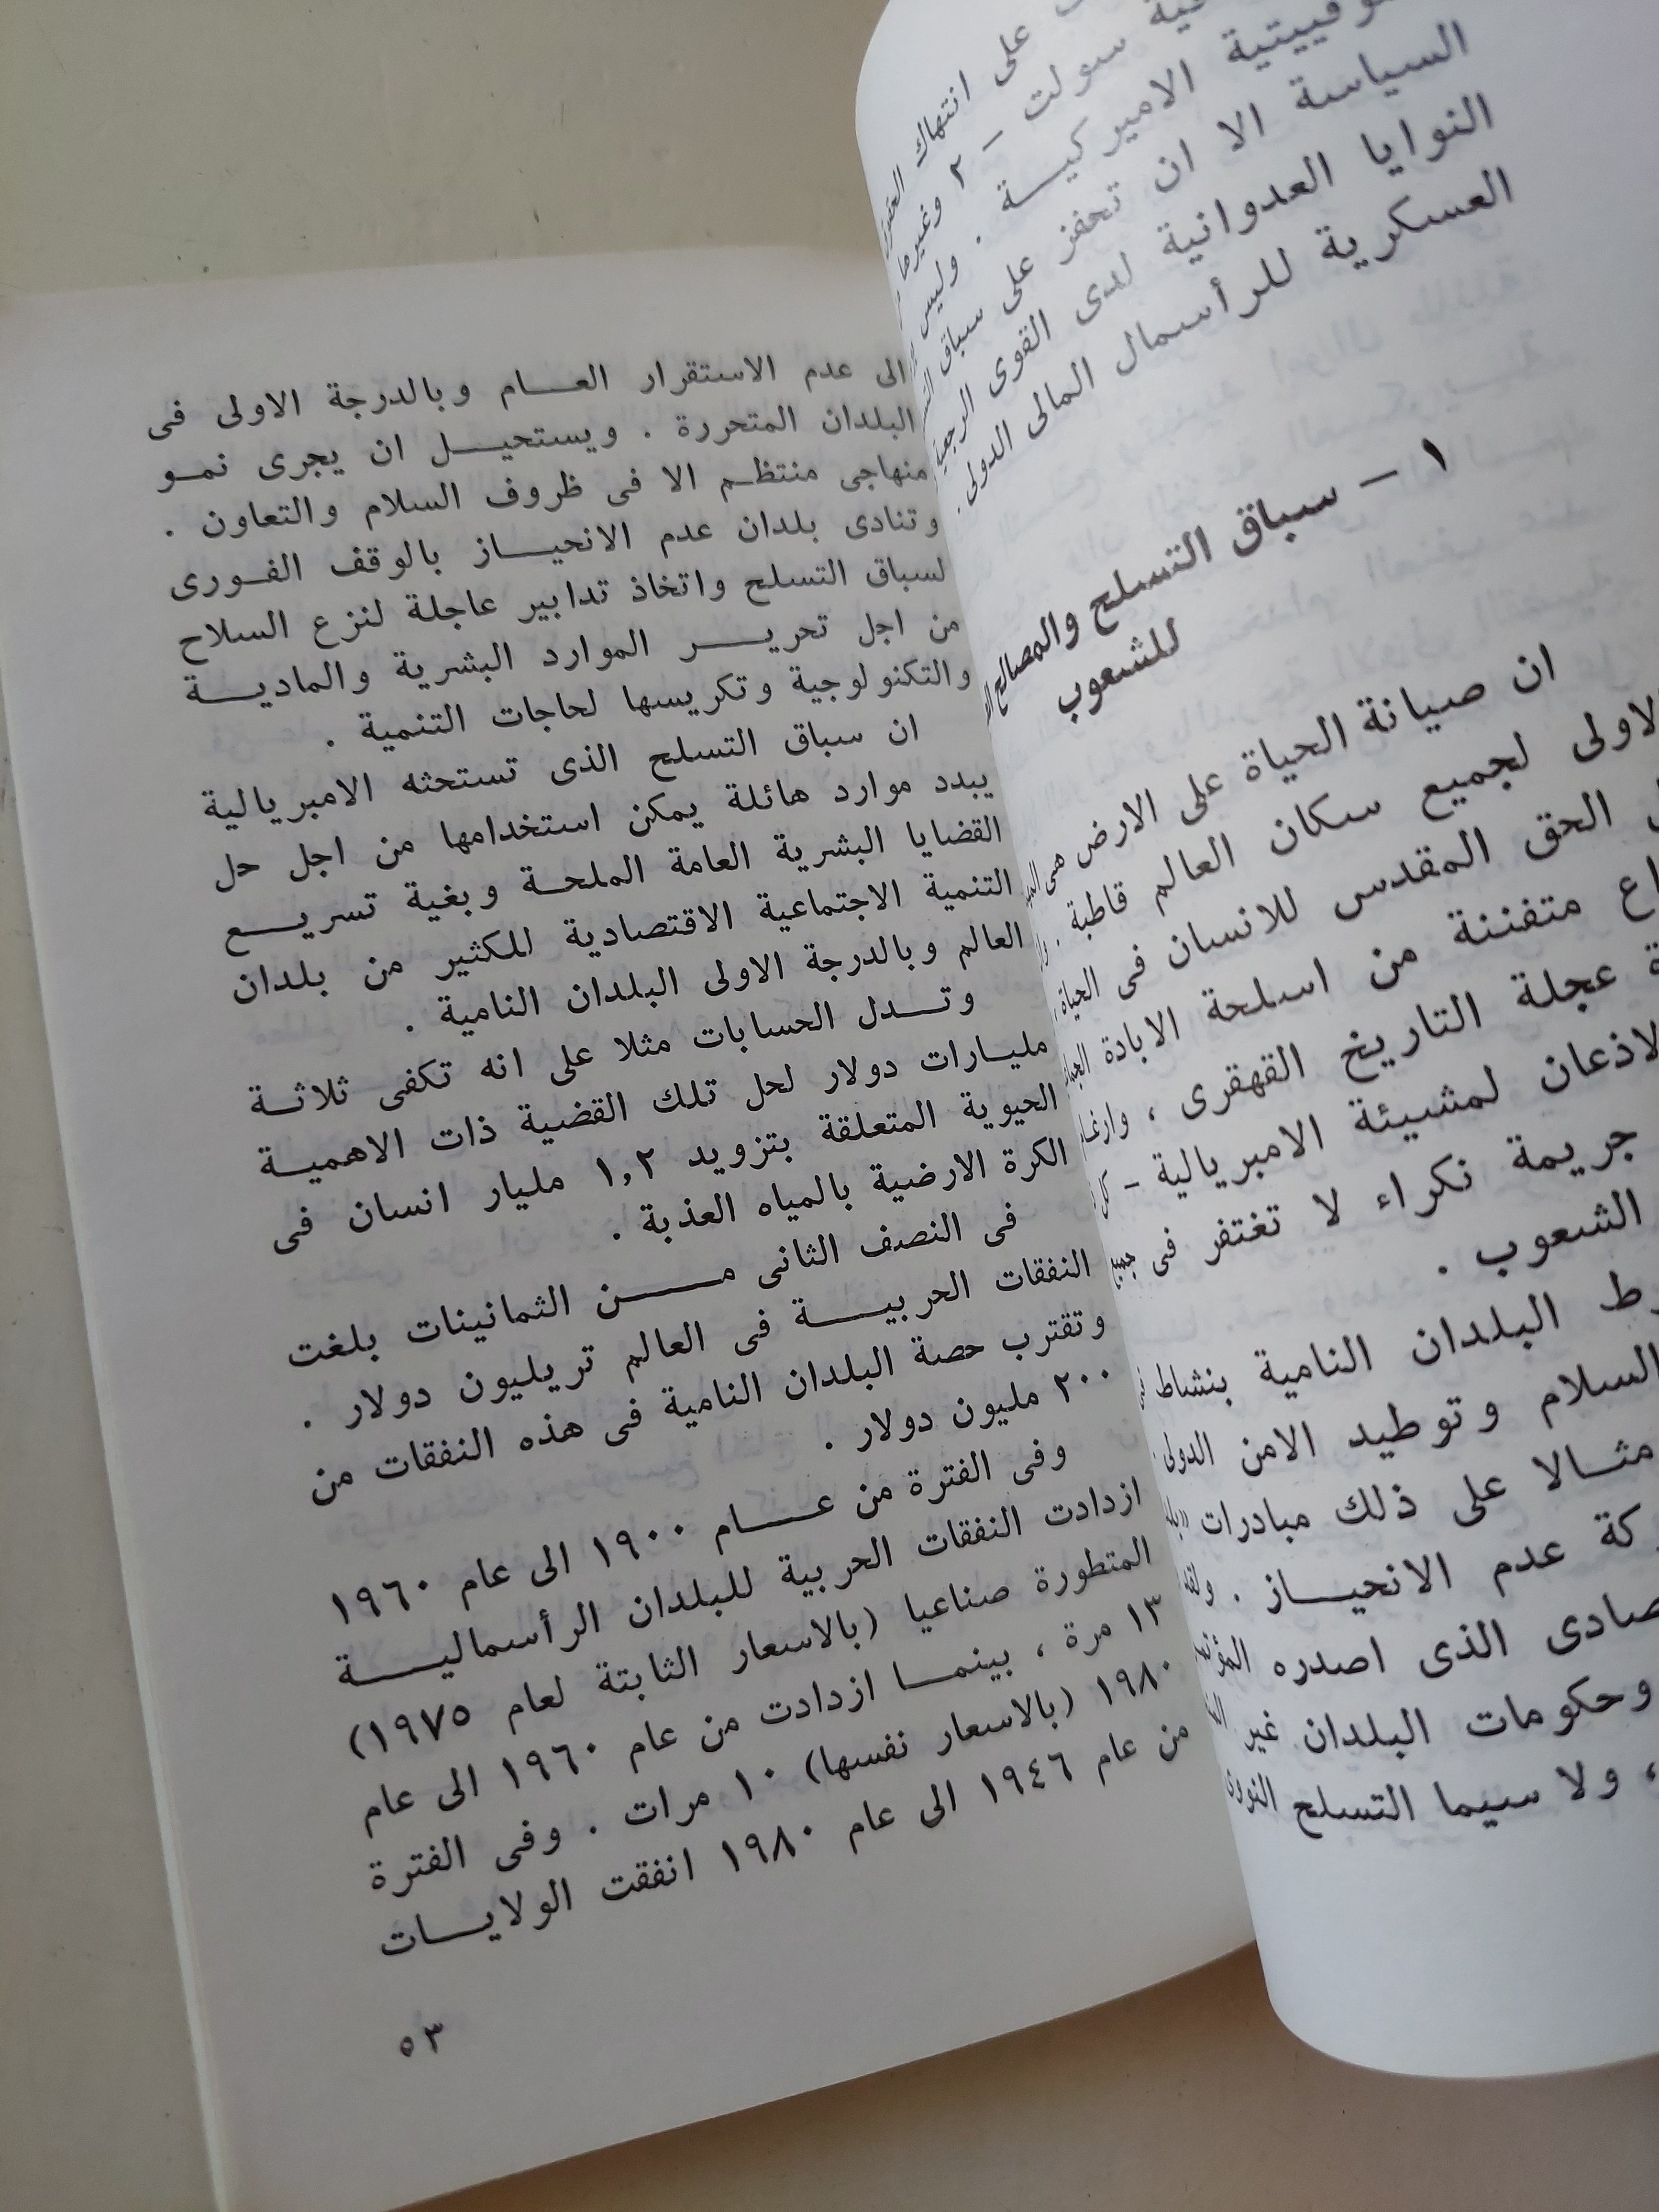 على انتهاك
سولت - ٢ وغيرها
الاميركيـــة . وليس
السياسة الا ان تحفز على سباق
النوايا العدوانية لدى القوى الرجعية
العسكرية للرأسمال المالى الدولى .
١ - سباق التسلح والمصالح
للشعوب
ان صيانة الحياة على الارض هى
الاولى لجميع سكان العالم قاطبة .
الحق المقدس للانسان فى الحياة ،
متفننة من اسلحة الابادة
عجلة التاريخ القهقرى ،
لمشيئة الامبريالية -
جريمة نكراء لا تغتفر فى جميع
الشعوب .
البلدان النامية بنشاط
السلام وتوطيد الامن الدولى
مثــالا على ذلك مبادرات
عدم الانحيـــاز .
الذى اصدره
وحكومات البلدان غير
، ولا سيما التسلح النووى
الى عدم الاستقرار العـــام وبالدرجة الاولى فى
البلدان المتحررة . ويستحيـــل ان يجرى نمــو
منهاجى منتظــم الا فى ظروف السلام والتعاون .
وتنادى بلدان عدم الانحيـــاز بالوقف الفــورى
لسباق التسلح واتخاذ تدابير عاجلة لنزع السلاح
من اجل تحريـــر الموارد البشرية والماديـــة
والتكنولوجية وتكريسها لحاجات التنمية .
ان سباق التسلح الذى تستحثه الامبريالية
يبدد موارد هائلة يمكن استخدامها من اجل حل
القضايا البشرية العامة الملحــة وبغية تسريـــع
التنمية الاجتماعية الاقتصادية للكثير من بلدان
العالم وبالدرجة الاولى البلدان النامية .
وتـــدل الحسابات مثلا على انه تكفى ثلاثــة
مليــارات دولار لحل تلك القضية ذات الاهميــة
الحيوية المتعلقة بتزويد ١,٢ مليار انسان فى
الكرة الارضية بالمياه العذبة .
فى النصف الثانى مـــن الثمانينات بلغت
النفقات الحربيـــة فى العالم تريليون دولار .
وتقترب حصة البلدان النامية فى هذه النفقات من
٢٠٠ مليون دولار .
وفى الفترة من عـــام ١٩٠٠ الى عام ١٩٦٠
ازدادت النفقات الحربية للبلدان الرأسماليـــة
المتطورة صناعيا (بالاسعار الثابتة لعام ١٩٧٥)
١٣ مرة ، بينمــا ازدادت من عام ١٩٦٠ الى عام
١٩٨٠ (بالاسعار نفسها) ١٠ مرات . وفى الفترة
من عام ١٩٤٦ الى عام ١٩٨٠ انفقت الولايـــات
٥٣